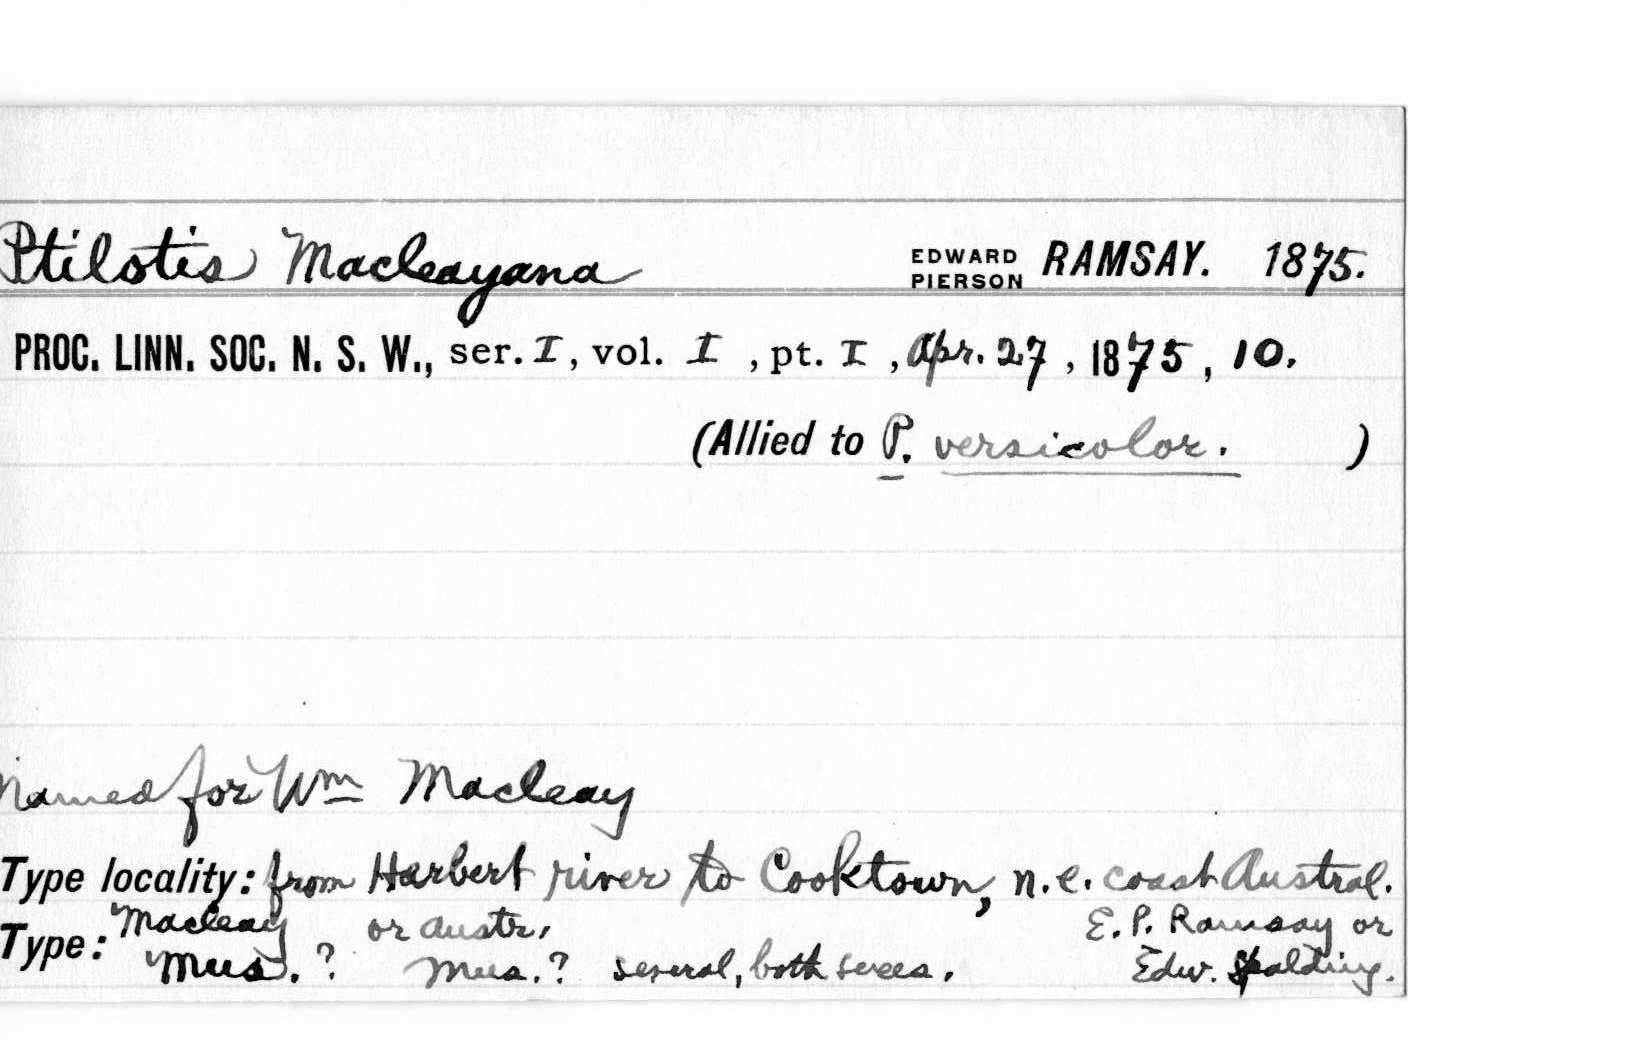 Ptilotis Macleayana EDWARD PIERSON RAMSAY. 1875.
PROC. LINN. SOC. N. S. W., ser. I, vol. I, pt. I, Apr. 27, 1875, 10.
(Allied to P. versicolor. )
Named for Wm Macleay
Type locality: from Harbert river to Cooktown, n.e. coast Austral.
Type: Macleay Mus. ? or Austr. Mus. ? several, both sexes. E. P. Ramsay or Edw. Spalding.